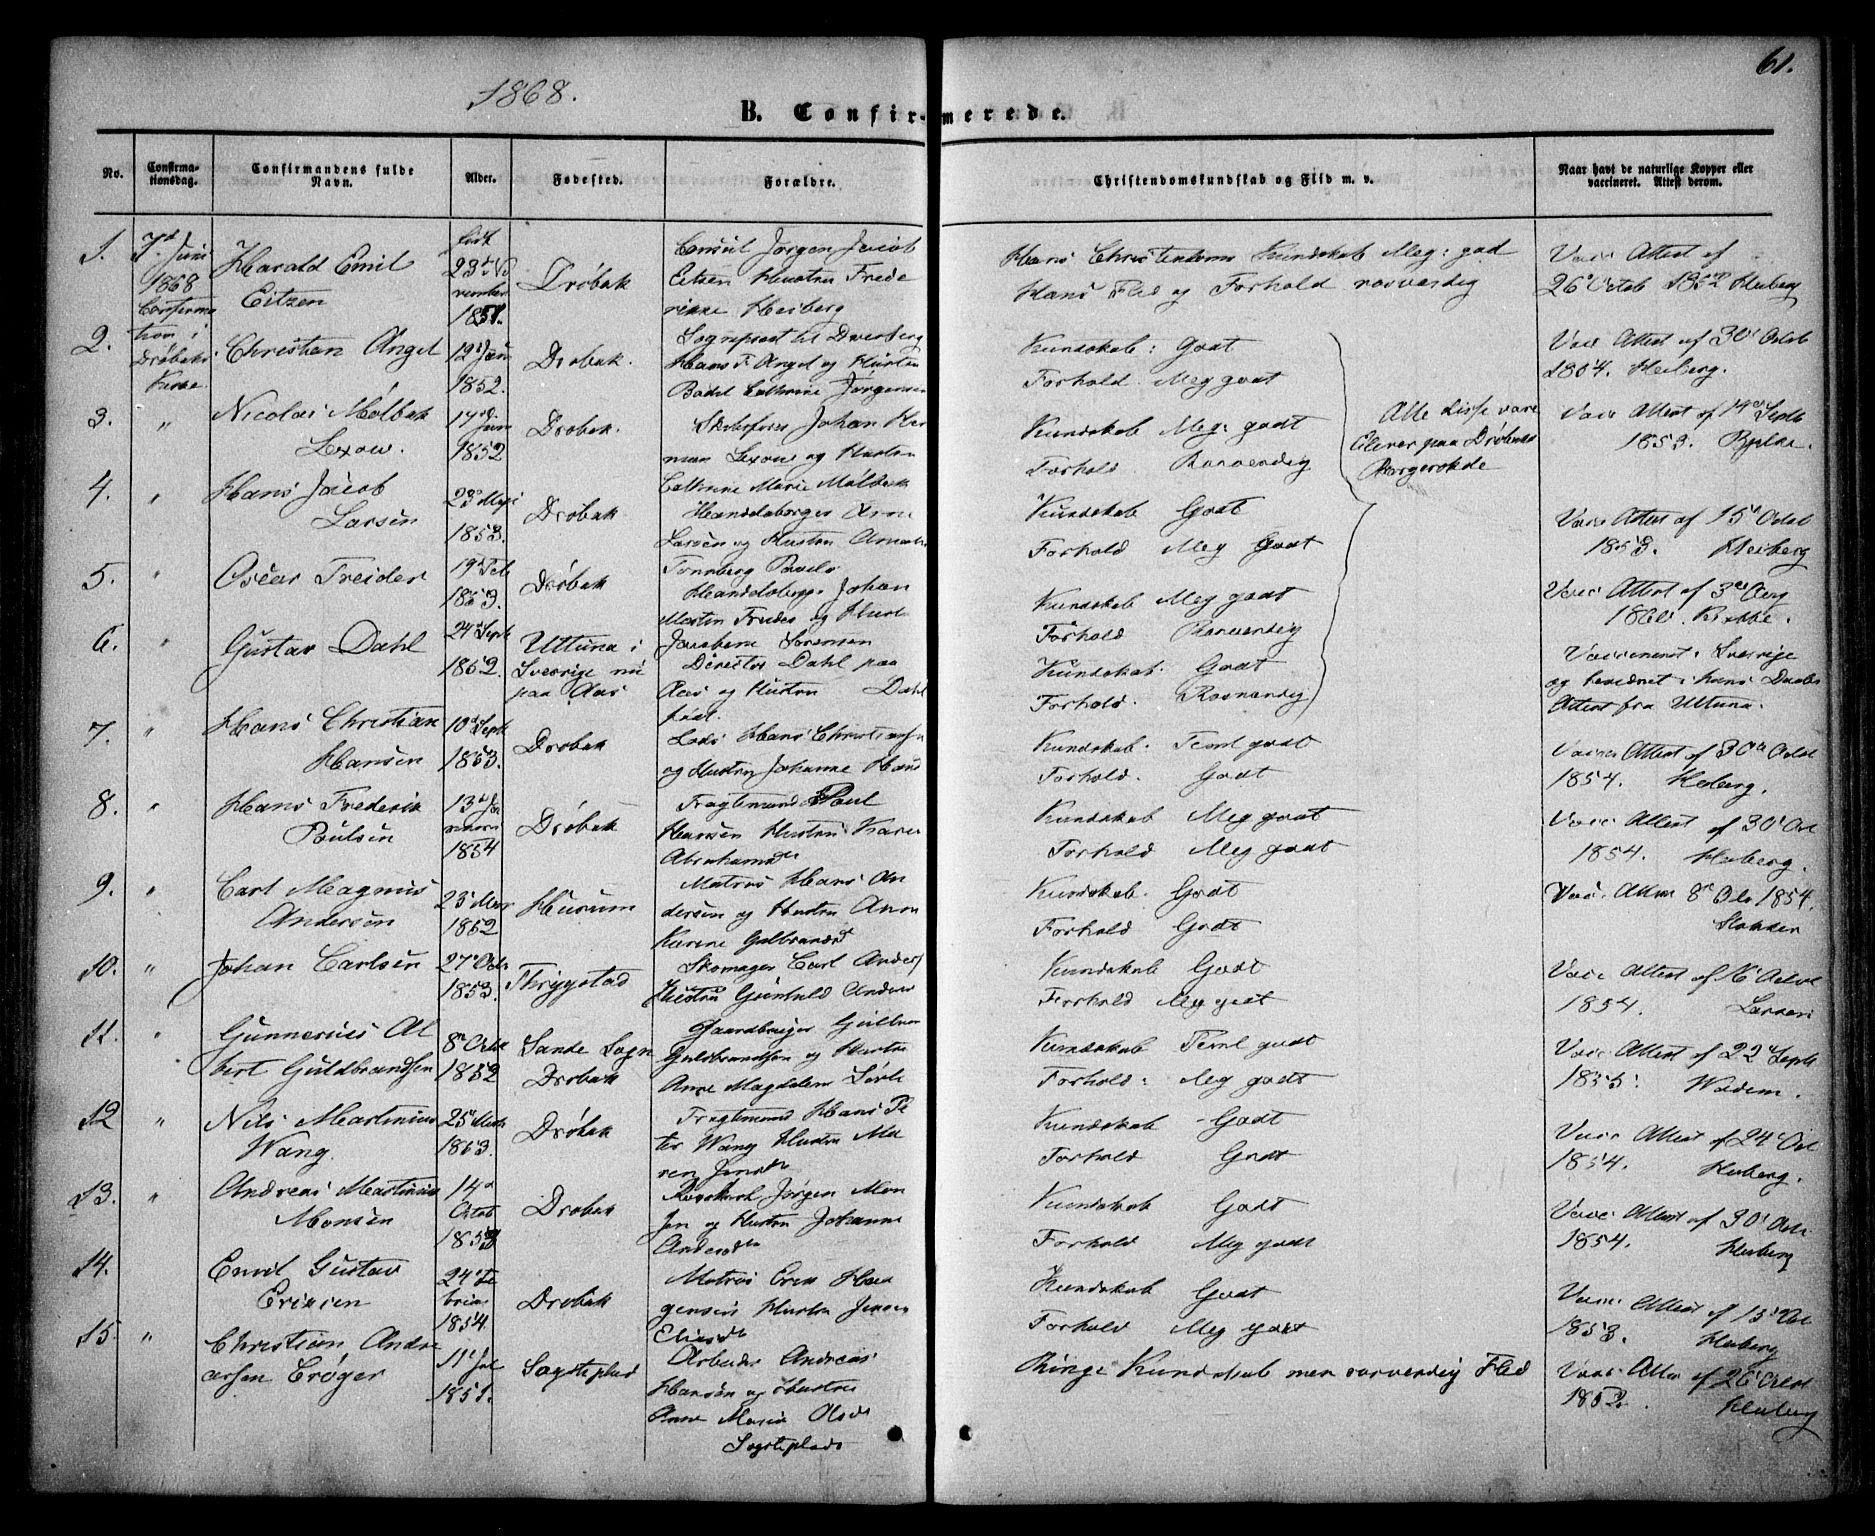 1868.
61.
B. Confir-merede.
No.
Confirma-
tionsdag.
Confirmandens fulde
Navn.
Alder.
Fødested.
Forældre.
Christendomskundskab og Flid m. v.
Naar havt de naturlige Kopper eller
vaccineret. Attest derom.
1.
7d Juni
1868
i
Drøbaks
Kirke
Harald Emil
Eitzen
født
23d No
vember
1851.
Drøbak
Consul Jørgen Jacob
Eitzen Hustru Frede
rikke Heiberg
Hans Christendoms Kundskab Meg: god
Hans Flid og Forhold rosværdig
Vacc Attest af
26 Octob 1852 Heiberg
2.
Christian Angel
12 Jan
1852.
Drøbak.
Sognepræst til
Hans F. Angel og Hustru
Bodil Cathrine Jørgensen
Kundskab: Godt
Forhold. Meg godt
Vacc Attest af 30 Octob
1854. Heiberg.
3.
"
Nicolai Mølbak
Lexow.
17d Jan
1852
Drøbak.
Johan Her
man Lexow og Hustru
Cathrine Marie Mølbak
Kundskab Meg: godt
Forhold Rosværdig
Alle disse vare
Elever paa Drøbaks
Borgerskole
Vacc Attest af 14 Septb
1853.
4.
"
Hans Jacob
Larsen
23d Maji
1853.
Drøbak
Handelsborger
Larsen og Hustru
Kundskab Godt
Forhold Meg Godt
Vacc Attest af 15 Octob
1853. Heiberg
5.
"
Oscar Treider
19 Feb
1853.
Drøbak
Handelsborger Johan
Martin Treider og Hust
Jacobine Sørensen
Kundskab Meg godt
Forhold Rosværdig
Vacc Attest af 3 Aug
6.
"
Gustav Dahl
24d Septb
1852.
Ultuna i
Sverrige nu
paa Aas
Director Dahl paa
Aas og Hustru Dahl
født.
Kundskab. Godt
Forhold. Rosværdig
Vaccineret i Sverrige
og bevidnet i hans Daabs
Attest fra Ultuna.
7.
"
Hans Christian
Hansen
10d Septb
1853.
Drøbak
Lods Hans Christians
og Hustru Johanne Hans
Kundskab. Teml godt
Forhold. Godt
Vacc Attest af 30 Octob
1854. Heiberg.
8.
"
Hans Frederik
Poulsen
13d Ja
nuari
1854
Drøbak
Fragtemand Poul
Hansen Hustru Karen
Abrahamsdtr
Kundskab Meg godt
Forhold Meg godt
Vacc Attest af 30 Oct
1854. Heiberg.
9.
"
Carl Magnus
Andersen
1852
Husum
Matros Hans An
dersen og Hustru Anne
Karine Gulbrandsd
Kundskab. Godt
Forhold Godt
Vacc. Attest 8 Oct 1854.
10.
"
Johan Carlsen
27 Octb
1853.
Thrygstad
Skomager Carl Anders
Hustru Gunhild Anders
Kundskab Godt
Forhold Meg godt
Vacc Attest af 16 Octob
1854. Larsen
11.
"
Gunnerius Al
bert Guldbrandsen
8 Octb
1852
Sande Sogn
Drøbak
Gaardbruger
Guldbrandsen og Hustru
Anne Magdalena
Kundskab Teml godt
Forhold: Meg godt
Vacc Attest af 22 Septb
1855.
12
"
Nils Martinius
Wang.
25
1853.
Drøbak
Fragtemand Hans Pe
ter Wang Hustru Ma
ren Jensdtr
Kundskab Godt
Forhold Godt
Vacc Attest af 24 Oct
1854. Heiberg.
13.
"
Andreas Martinius
Monsen
14d
Octob
1853
Drøbak
Jørgen Mon
sen og Hustru Johanne
Andersdtr
Kundskab Godt
Forhold Meg godt
Vacc Attest af 30 Octb
1854. Heiberg
14.
Emil Gustav
Eriksen
24 Fe
bruar
1854.
Drøbak
Matros Erik
Hustru Jensine
Eliasdtr
Kundskab Godt
Forhold Meg godt
Vacc Attest af 15 Oct
1853. Heiberg
15.
"
Christian Andre
asen Crøger
11 Jul
1851.
Arbeider Andreas
Hansen og Hustru
Anne Maria Olsdtr
Ringe Kundskab men rosværdig Flid
Vacc Attest af 26 Octob
1852. Heiberg